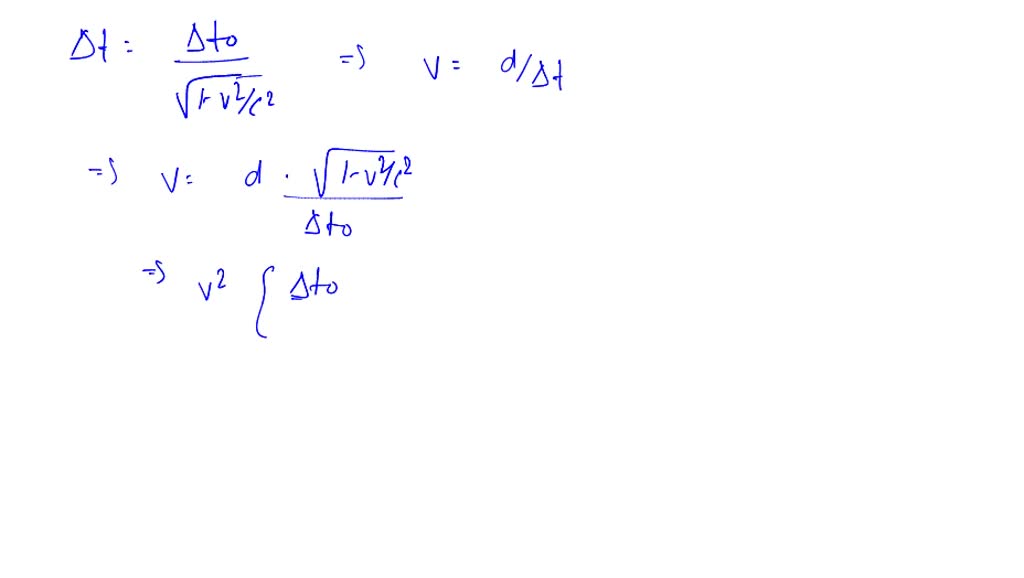 Δt = Δto / √1-v²/c² => v = d/Δt
=> v = d · √1-v²/c² / Δto
=> v² { Δto